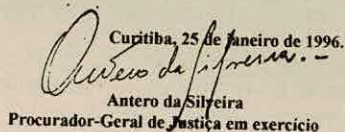 Curitiba, 25 de Janeiro de 1996.
Antero da Silveira.-
Antero da Silveira
Procurador-Geral de Justiça em exercício